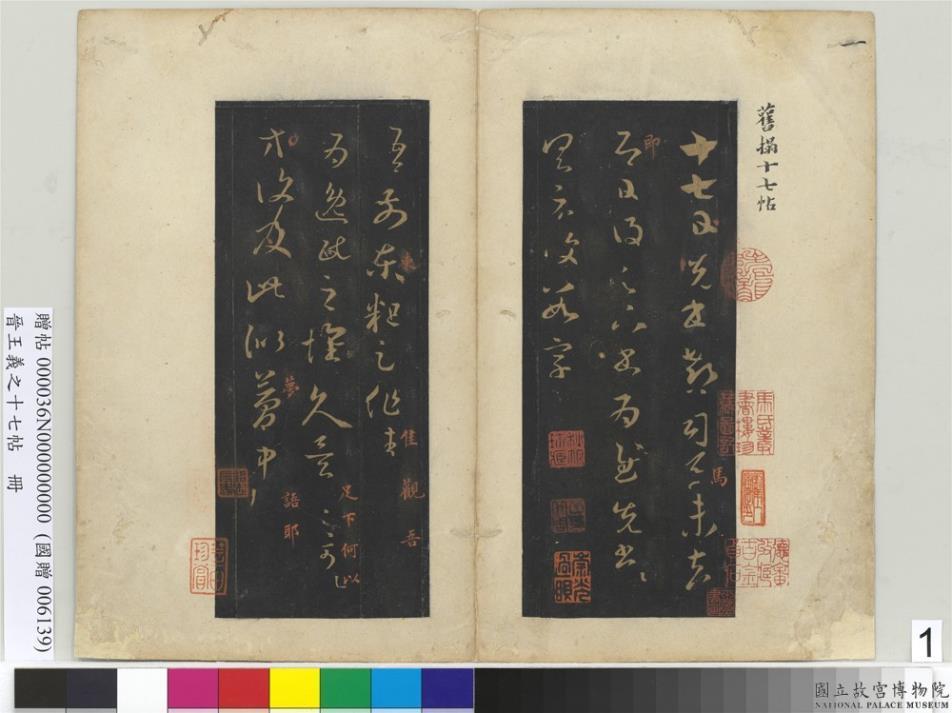 舊搨十七帖
十七日先書郗司馬未去
即日得足下書為慰先書以
具示復數字
吾前東粗足作佳觀吾
為逸民之懷久矣足下何以
等復及此似夢中語耶
贈帖 000036N000000000 (國贈 006139)
晉王羲之十七帖 冊
1
國立故宮博物院
NATIONAL PALACE MUSEUM